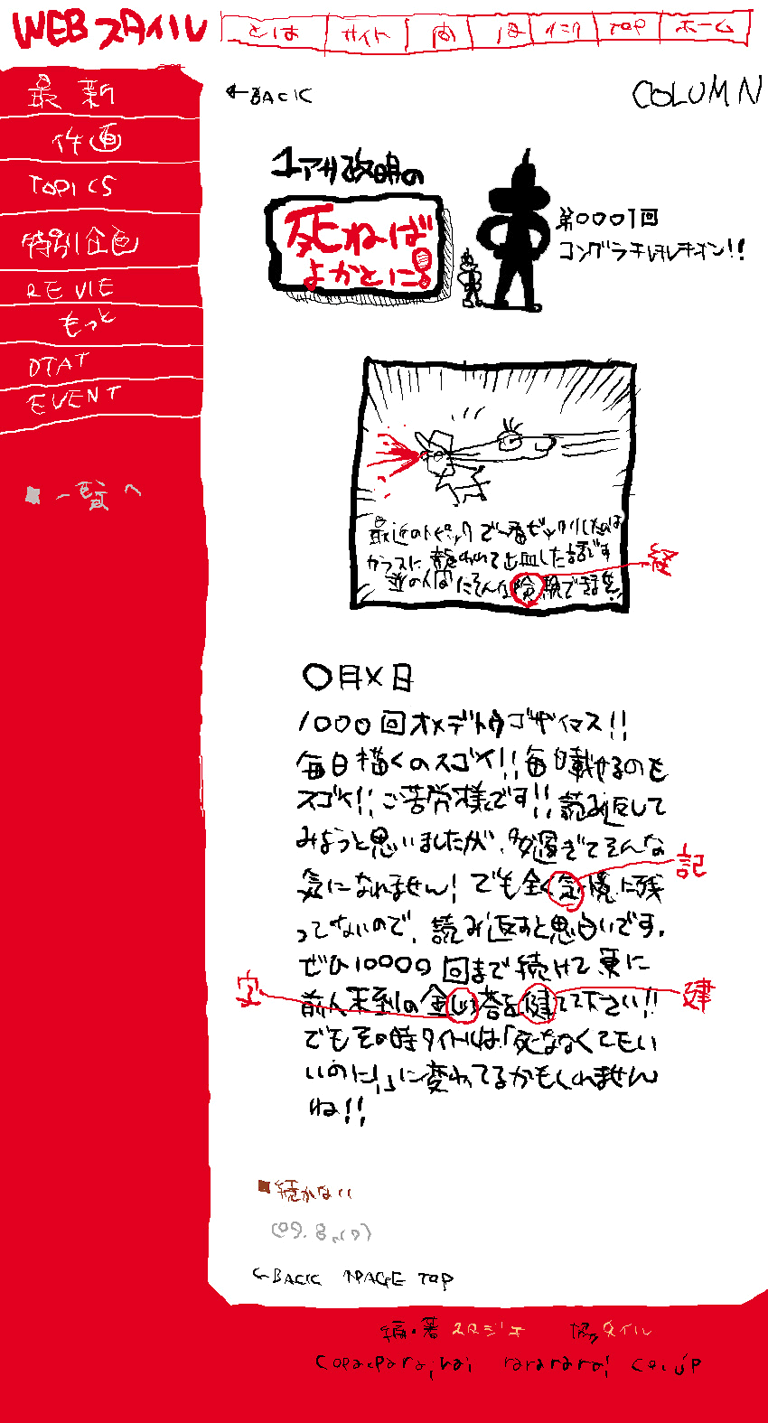 WEBスタイル
とは サイト TOP ホーム
最新
作画
TOPICS
特別企画
REVIE
もっと
DTAT
EVENT
■一覧へ
←BACK
COLUMN
ユアサ政明の
死ねば
よかとに!
第0001回
コングラチュレーチオン!!
最近のトピックで一番ビックリしたのは
カラスに襲われて出血した話です
並の人間にそんな険験できません!!
経
〇月×日
1000回オメデトウゴザイマス!!
毎日描くのスゴイ!!毎日載せるのも
スゴイ!!ご苦労様です!!読み返して
みようと思いましたが、多過ぎてそんな
気になれません!でも全く憶に残
記
ってないので、読み返すと思白いです。
ぜひ10000回まで続けて更に
前人未到の金じ塔を健てて下さい!!
字
建
でもその時タイトルは「死ななくてもい
いのに!」に変わってるかもしれません
ね!!
■続かない
(09.8.17)
←BACK ↑PAGE TOP
編・著 スタジオ 協力 タイル